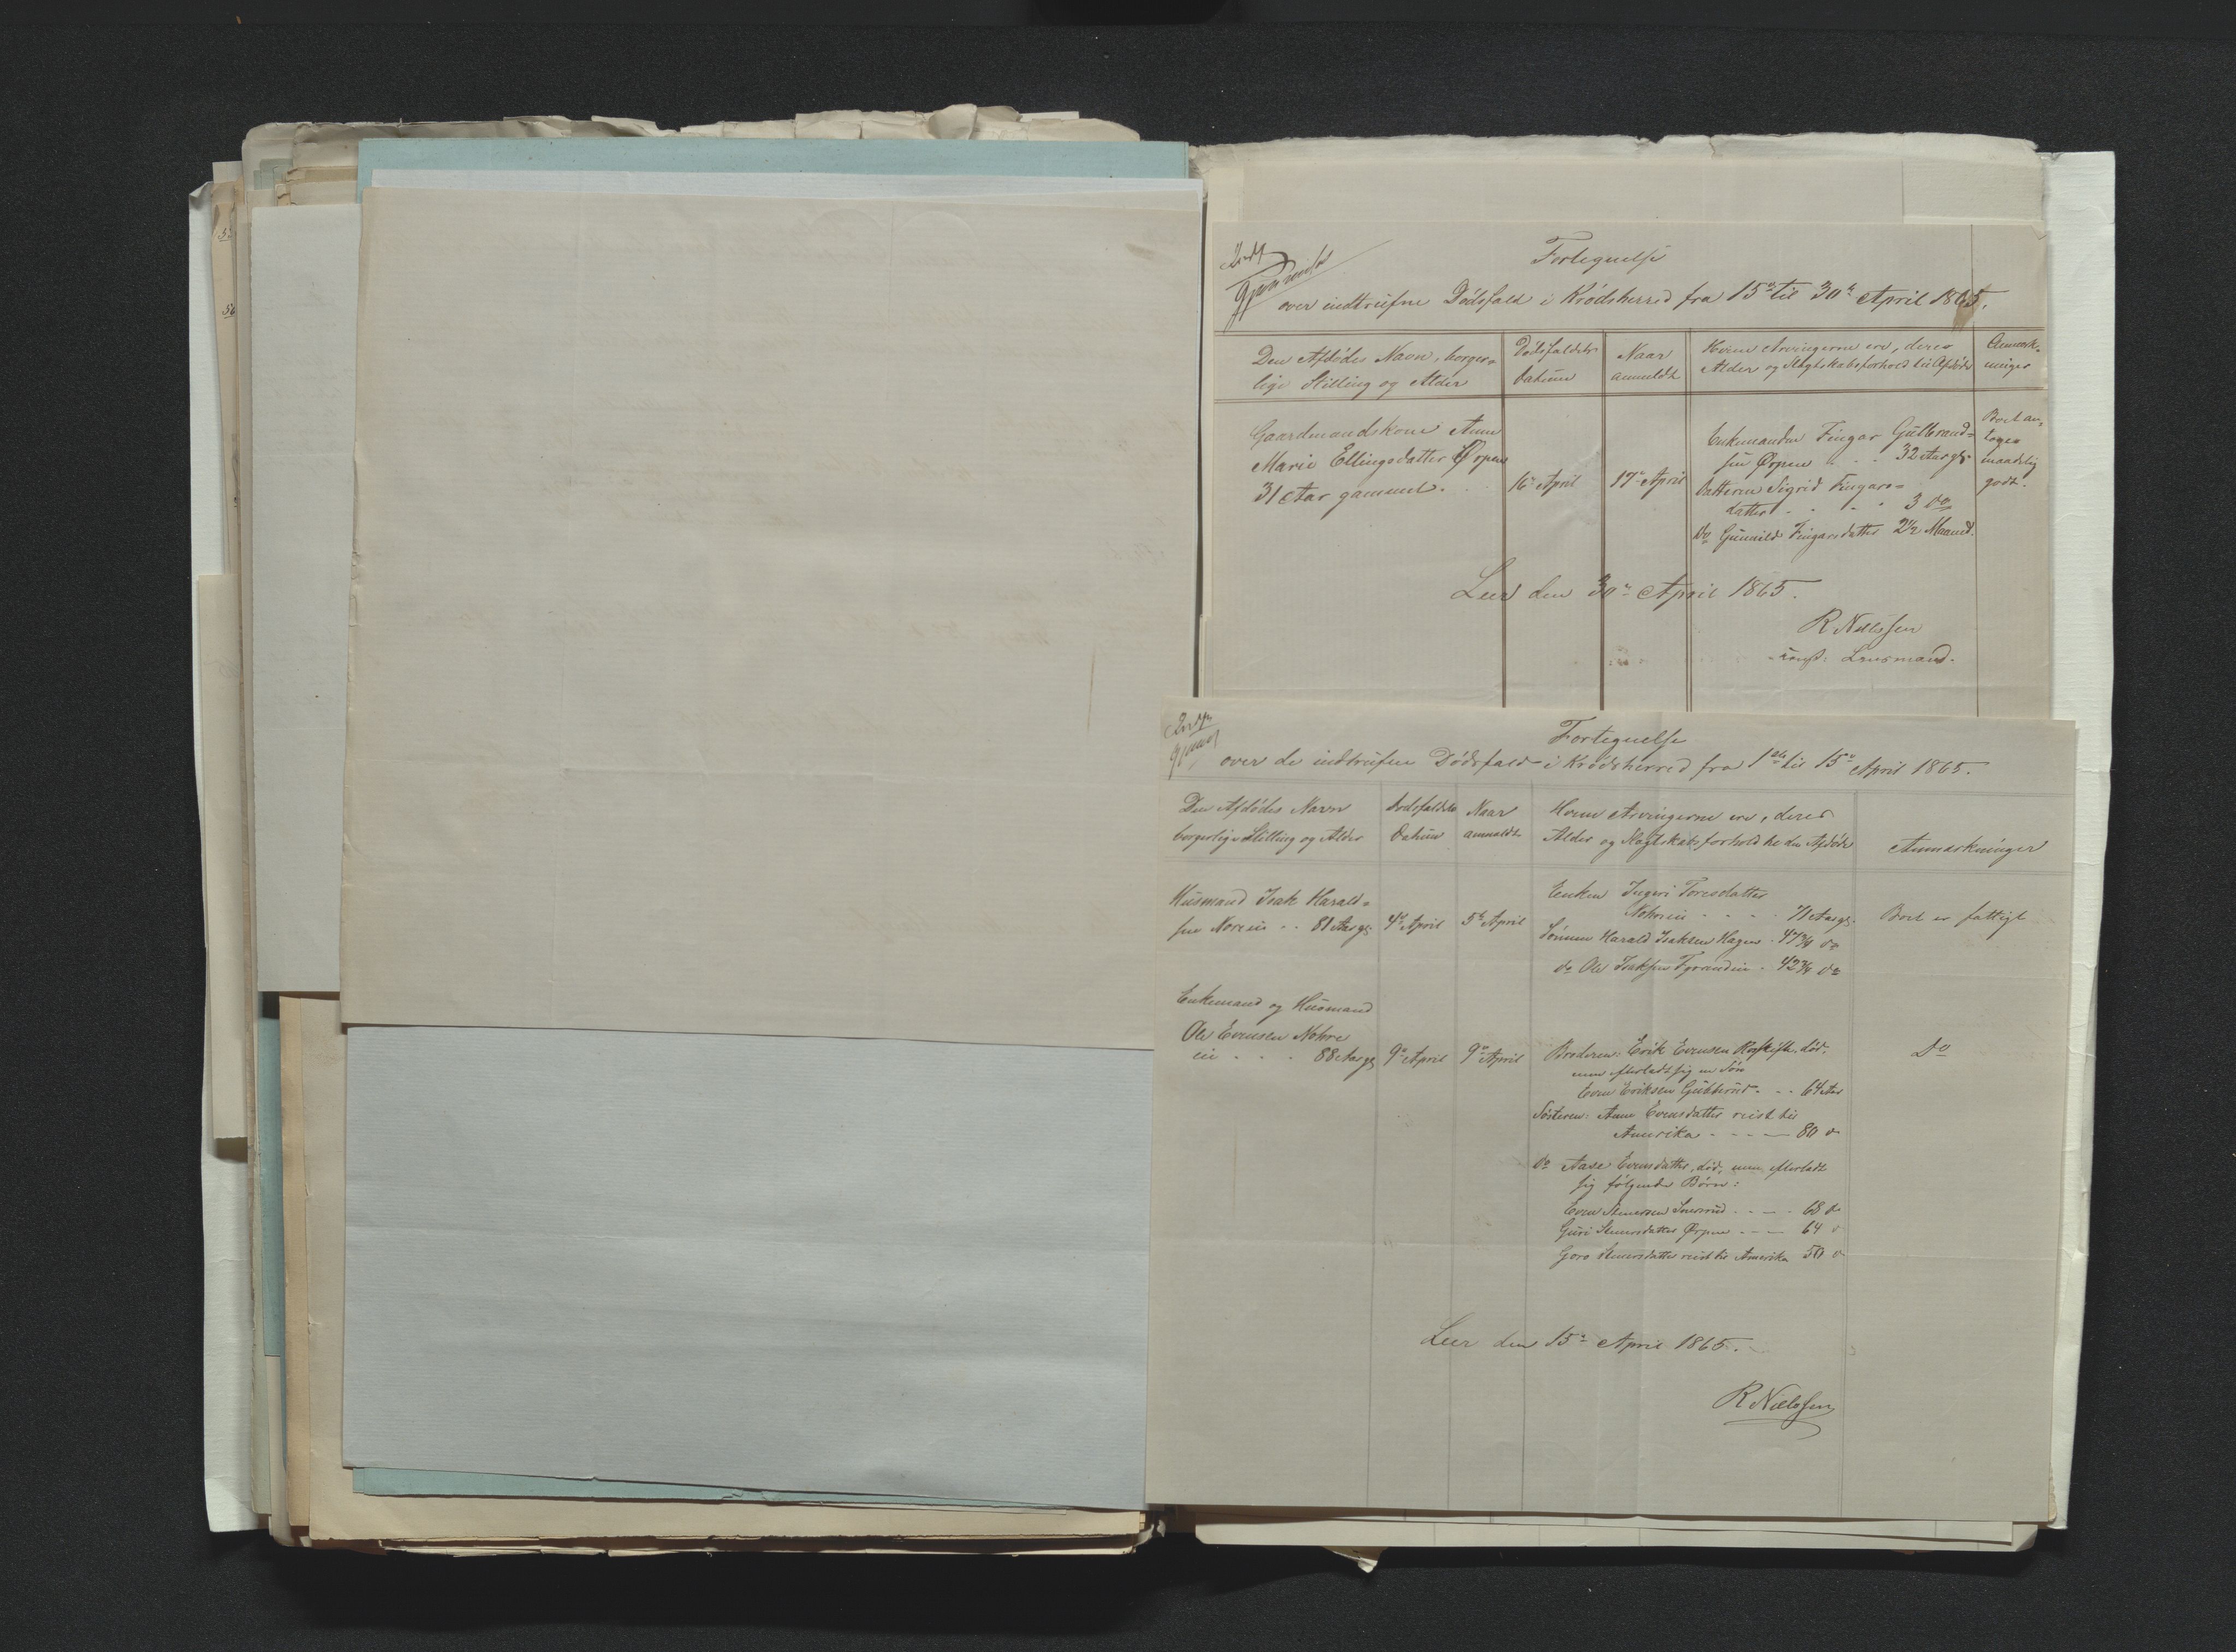 Fortegnelse
over indtrufne Dödsfald i Krödsherred fra 15de til 30te April 1865.
Den Afdödes Navn, borger-
lige Stilling og Alder
Dödsfaldets
Datum
Naar
anmeldt
Hvem Arvingerne ere, deres
Alder og Slægtskabsforhold til Afdöde
Anmærk-
ninger
Gaardmandskone Anne
Marie Ellingsdatter Ørpen
31 Aar gammel.
16de April
17de April
Enkemanden Fingar Gulbrand-
sen Ørpen . . . 32 Aar gl.
Datteren Sigrid Fingars-
datter . . . . 3 do
do Gunnild Fingarsdatter 2 1/2 Maaned.
Boet an-
tages
maadelig
godt.
Leer den 30te April 1865.
R Nielssen
const: Lensmand.
Fortegnelse
over de indtrufne Dödsfald i Krödsherred fra 1ste til 15de April 1865.
Den Afdödes Navn
borgerlige Stilling og Alder
Dödsfaldets
Datum
Naar
anmeldt
Hvem Arvingerne ere, deres
Alder og Slægtskabsforhold til den Afdöde
Anmærkninger
Husmand Isak Harald-
sen Noreie . . 81 Aar gl.
4de April
5te April
Enken Ingeri Toresdatter
Nohreie . . . . 71 Aar gl.
Sönnen Harald Isaksen Hagen . 47 3/4 do
do Ole Isaksen . 42 3/4 do
Boet er fattigt
Enkemand og Husmand
Ole Evensen Nohre
eie . . . 88 Aar gl
9de April
9de April
Broderen: Erik Evensen död,
men efterladt sig en Sön
Even Eriksen Gubberud . . . 64 Aar
Sösteren: Anne Evensdatter reist til
Amerika . . . . 80 do
do Aase Evensdatter, död, men efterladt
sig fölgende Börn:
Even Steners­en . . . . 68 do
Guri Stenersdatter Ørpen . . . 64 do
Goro Stenersdatter reist til Amerika 50 do
Do
Leer den 15de April 1865.
R Nielssen